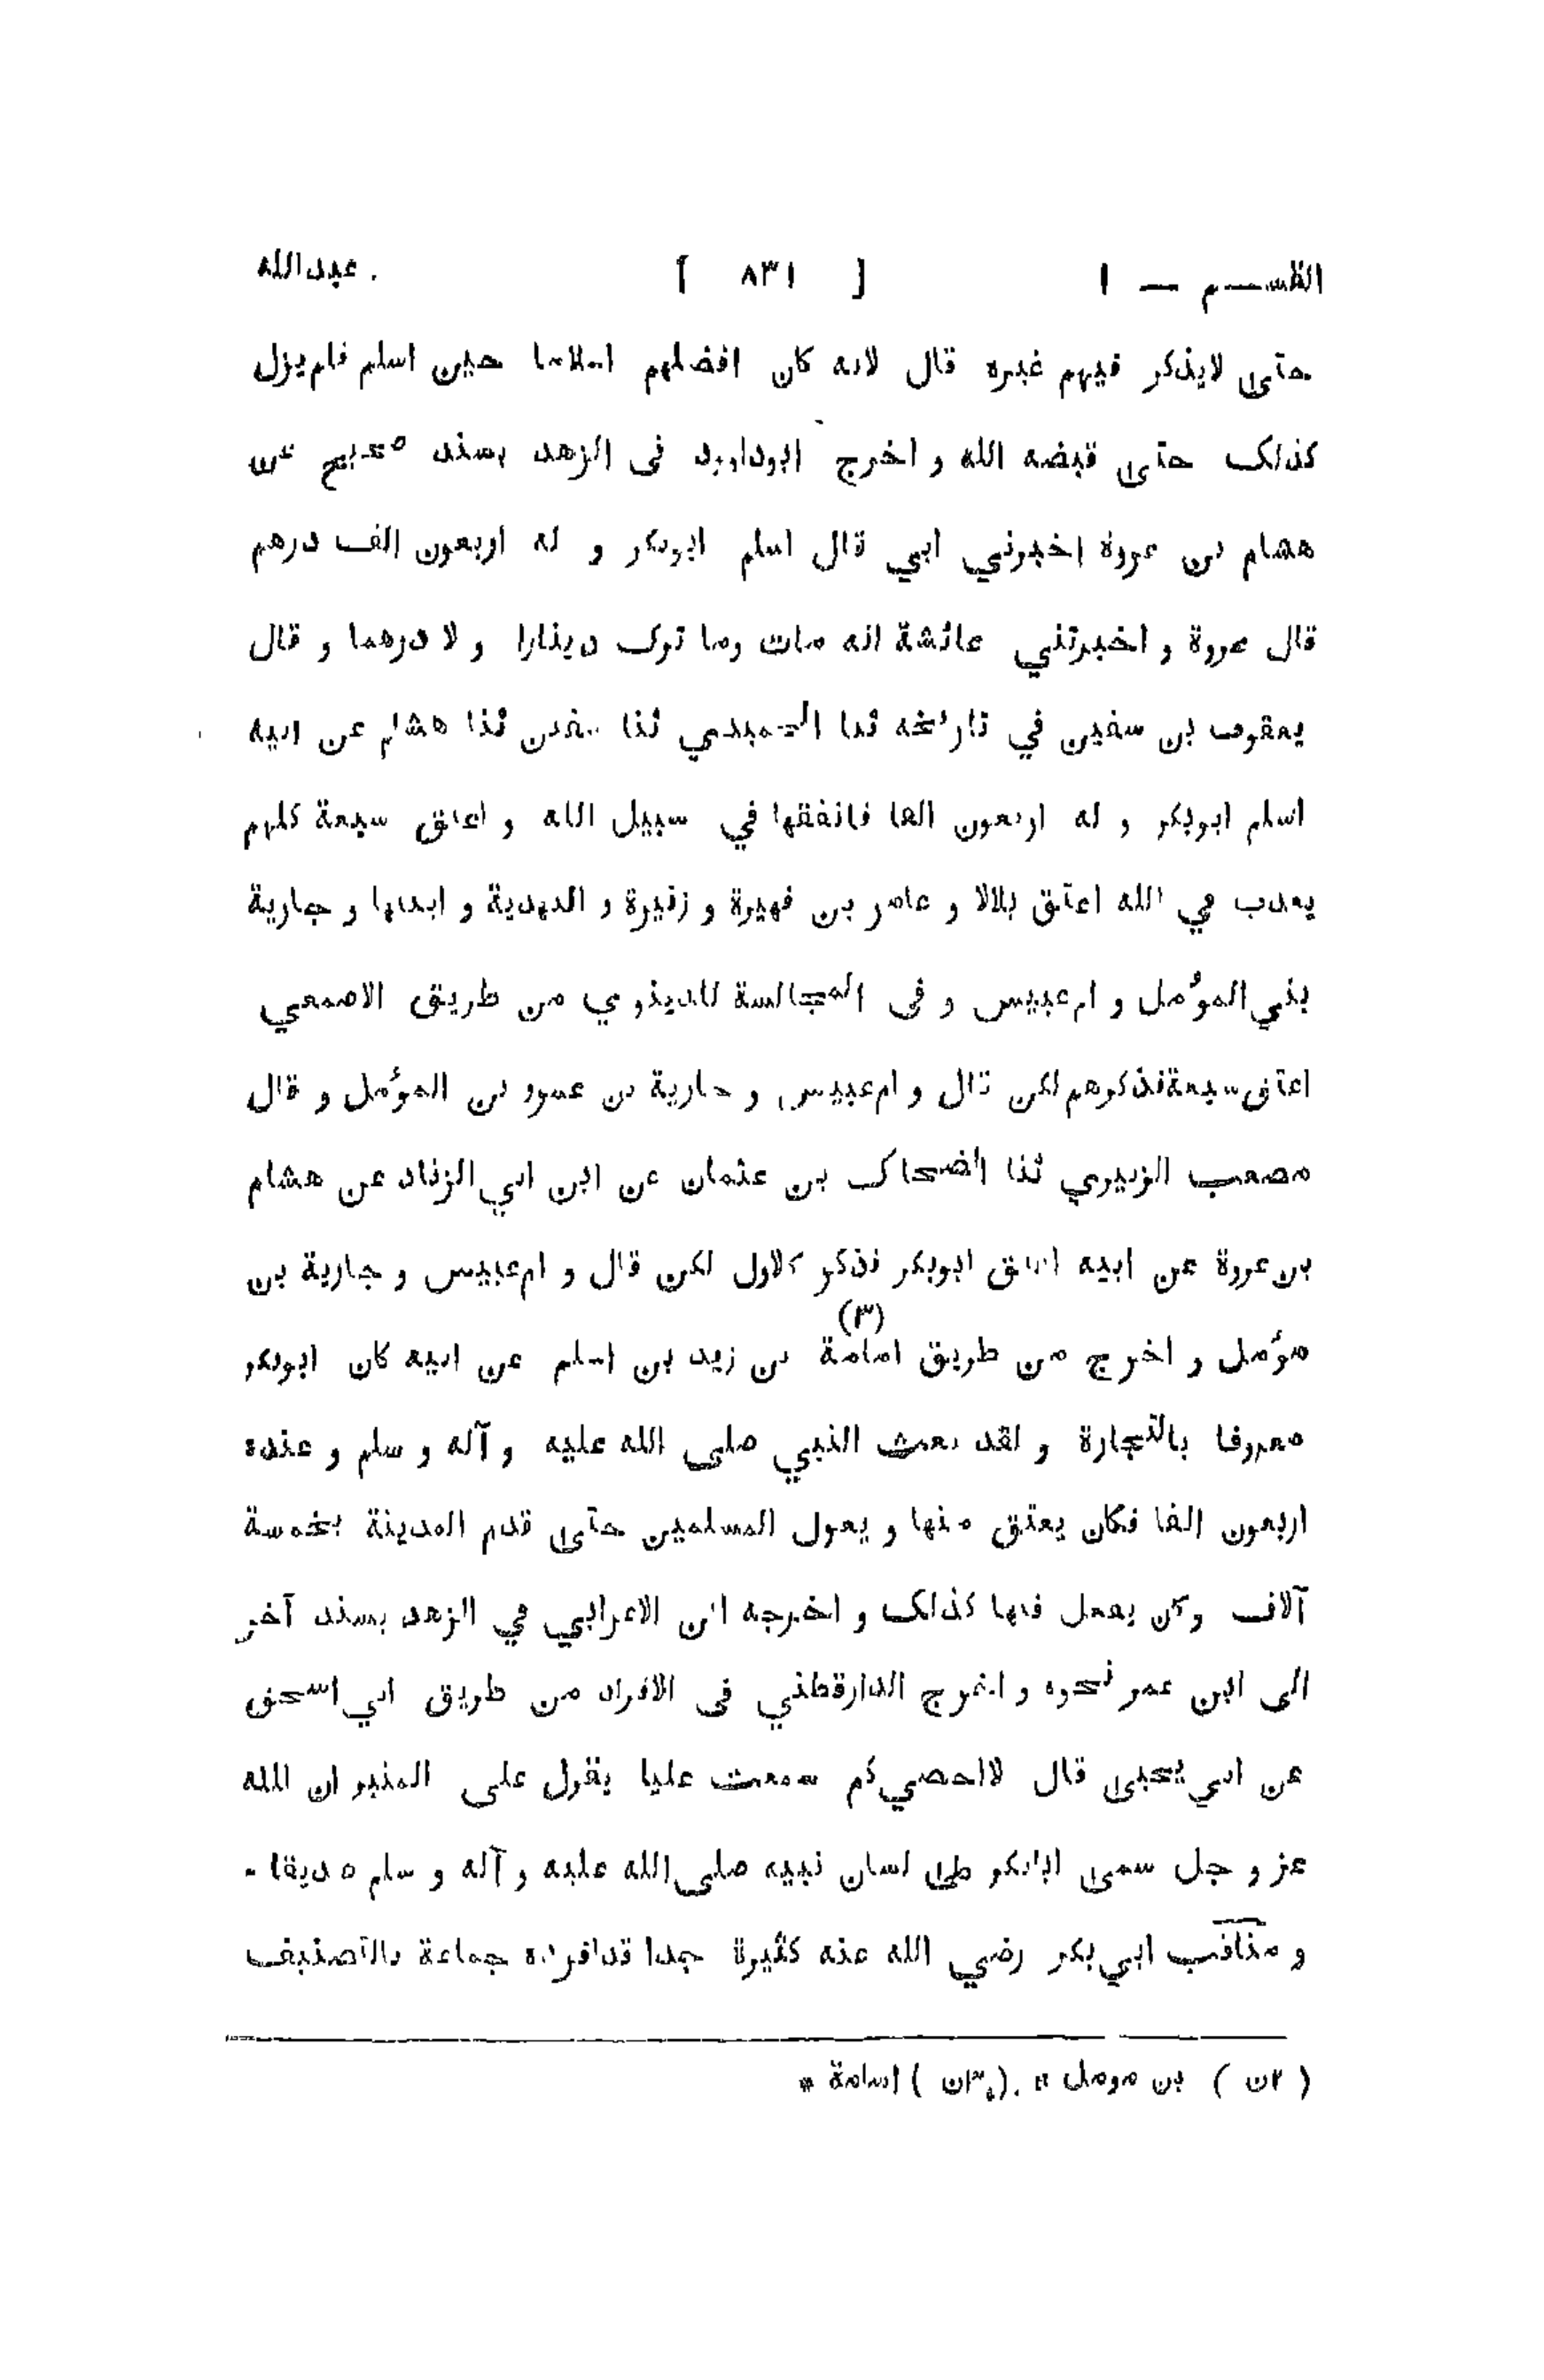 القسم — ١ [ ٨٣١ ] عبدالله
حتى لايذكر فيهم غيره قال لانه كان افضلهم اسلاما حين اسلم فلم يزل
كذلك حتى قبضه الله و اخرج ابوداود فى الزهد بسند صحيح عن
هشام بن عروة اخبرني ابي قال اسلم ابوبكر و له اربعون الف درهم
قال عروة و اخبرتني عائشة انه مات وما ترك دينارا و لا درهما و قال
يعقوب بن سفين في تاريخه ثنا الحميدي ثنا سفين ثنا هشام عن ابيه
اسلم ابوبكر و له اربعون الفا فانفقها في سبيل الله و اعتق سبعة كلهم
يعذب في الله اعتق بلالا و عامر بن فهيرة و زنيرة و النهدية و ابنتها و جارية
بني المؤمل و ام عبيس و فى المجالسة للدينوري من طريق الاصمعي
اعتق سبعة فذكرهم لكن قال و ام عبيس و جارية بن عمرو بن المؤمل و قال
مصعب الزبيري ثنا الضحاك بن عثمان عن ابن ابي الزناد عن هشام
بن عروة عن ابيه اعتق ابوبكر فذكر كالاول لكن قال و ام عبيس و جارية بن
مؤمل و اخرج من طريق امامة (٣) بن زيد بن اسلم عن ابيه كان ابوبكر
معروفا بالتجارة و لقد بعث النبي صلى الله عليه و آله و سلم و عنده
اربعون الفا فكان يعتق منها و يعول المسلمين حتى قدم المدينة بخمسة
آلاف وكن يفعل فيها كذلك و اخرجه ابن الاعرابي في الزهد بسند آخر
الى ابن عمر نحوه و اخرج الدارقطني فى الافراد من طريق ابي اسحق
عن ابي يحيى قال لااحصي كم سمعت عليا يقول على المنبر ان الله
عز و جل سمى ابابكر على لسان نبيه صلى الله عليه و آله و سلم صديقا -
و مناقب ابي بكر رضي الله عنه كثيرة جدا قد افرده جماعة بالتصنيف
( ٢ن ) بن مومل * ( ٣ن ) اسامة *